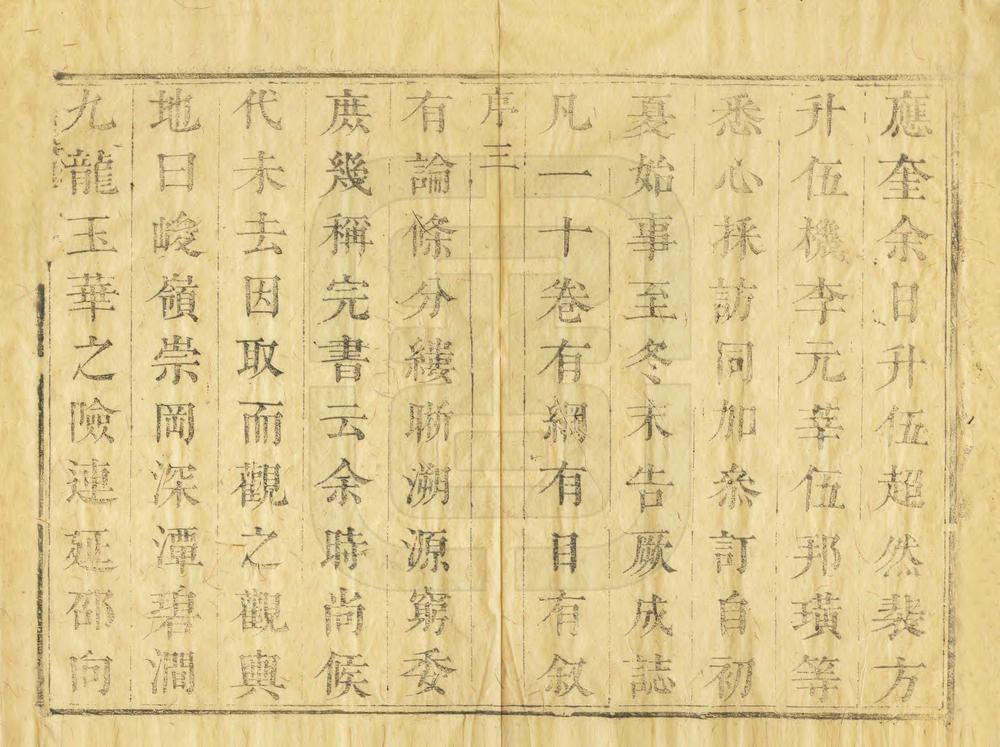 應奎余日升伍超然裴方
升伍機李元莘伍邦璜等
悉心採訪同加叅訂自初
夏始事至冬末告厥成誌
凡一十卷有綱有目有叙
序 三
有論條分縷晰溯源窮委
庶幾稱完書云余時尚候
代未去因取而觀之觀輿
地曰峻嶺崇岡深潭碧澗
九龍玉華之險連延邵向